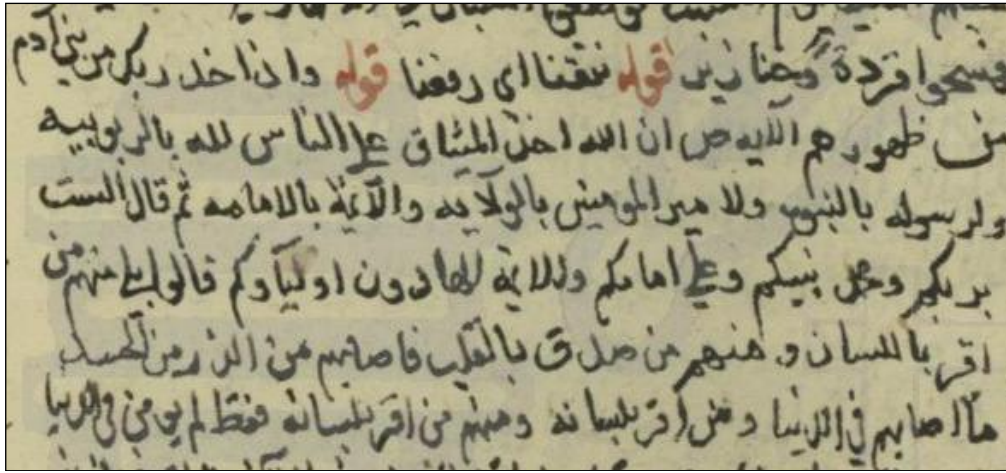 فمسخوا قردة وخنازير قوله نتقنا اي رفعنا قوله واذ اخذ ربك من بني ادم
من ظهورهم الآيه ص ان الله اخذ الميثاق علي الناس لله بالربوبيه
ولرسوله بالنبوه ولامير المومنين بالولايه والآئمة بالامامه ثم قال الست
بربكم ومحمد نبيكم وعلي امامكم والائمة الهادون اوليآوكم قالوا بلي منهم من
اقر باللسان ومنهم من صدق بالقلب فاصابهم من الذر من الحسد
ما اصابهم في الدنيا ومن اقر بلسانه ومنهم من اقر بلسانه فقط لم يومن في الدنيا